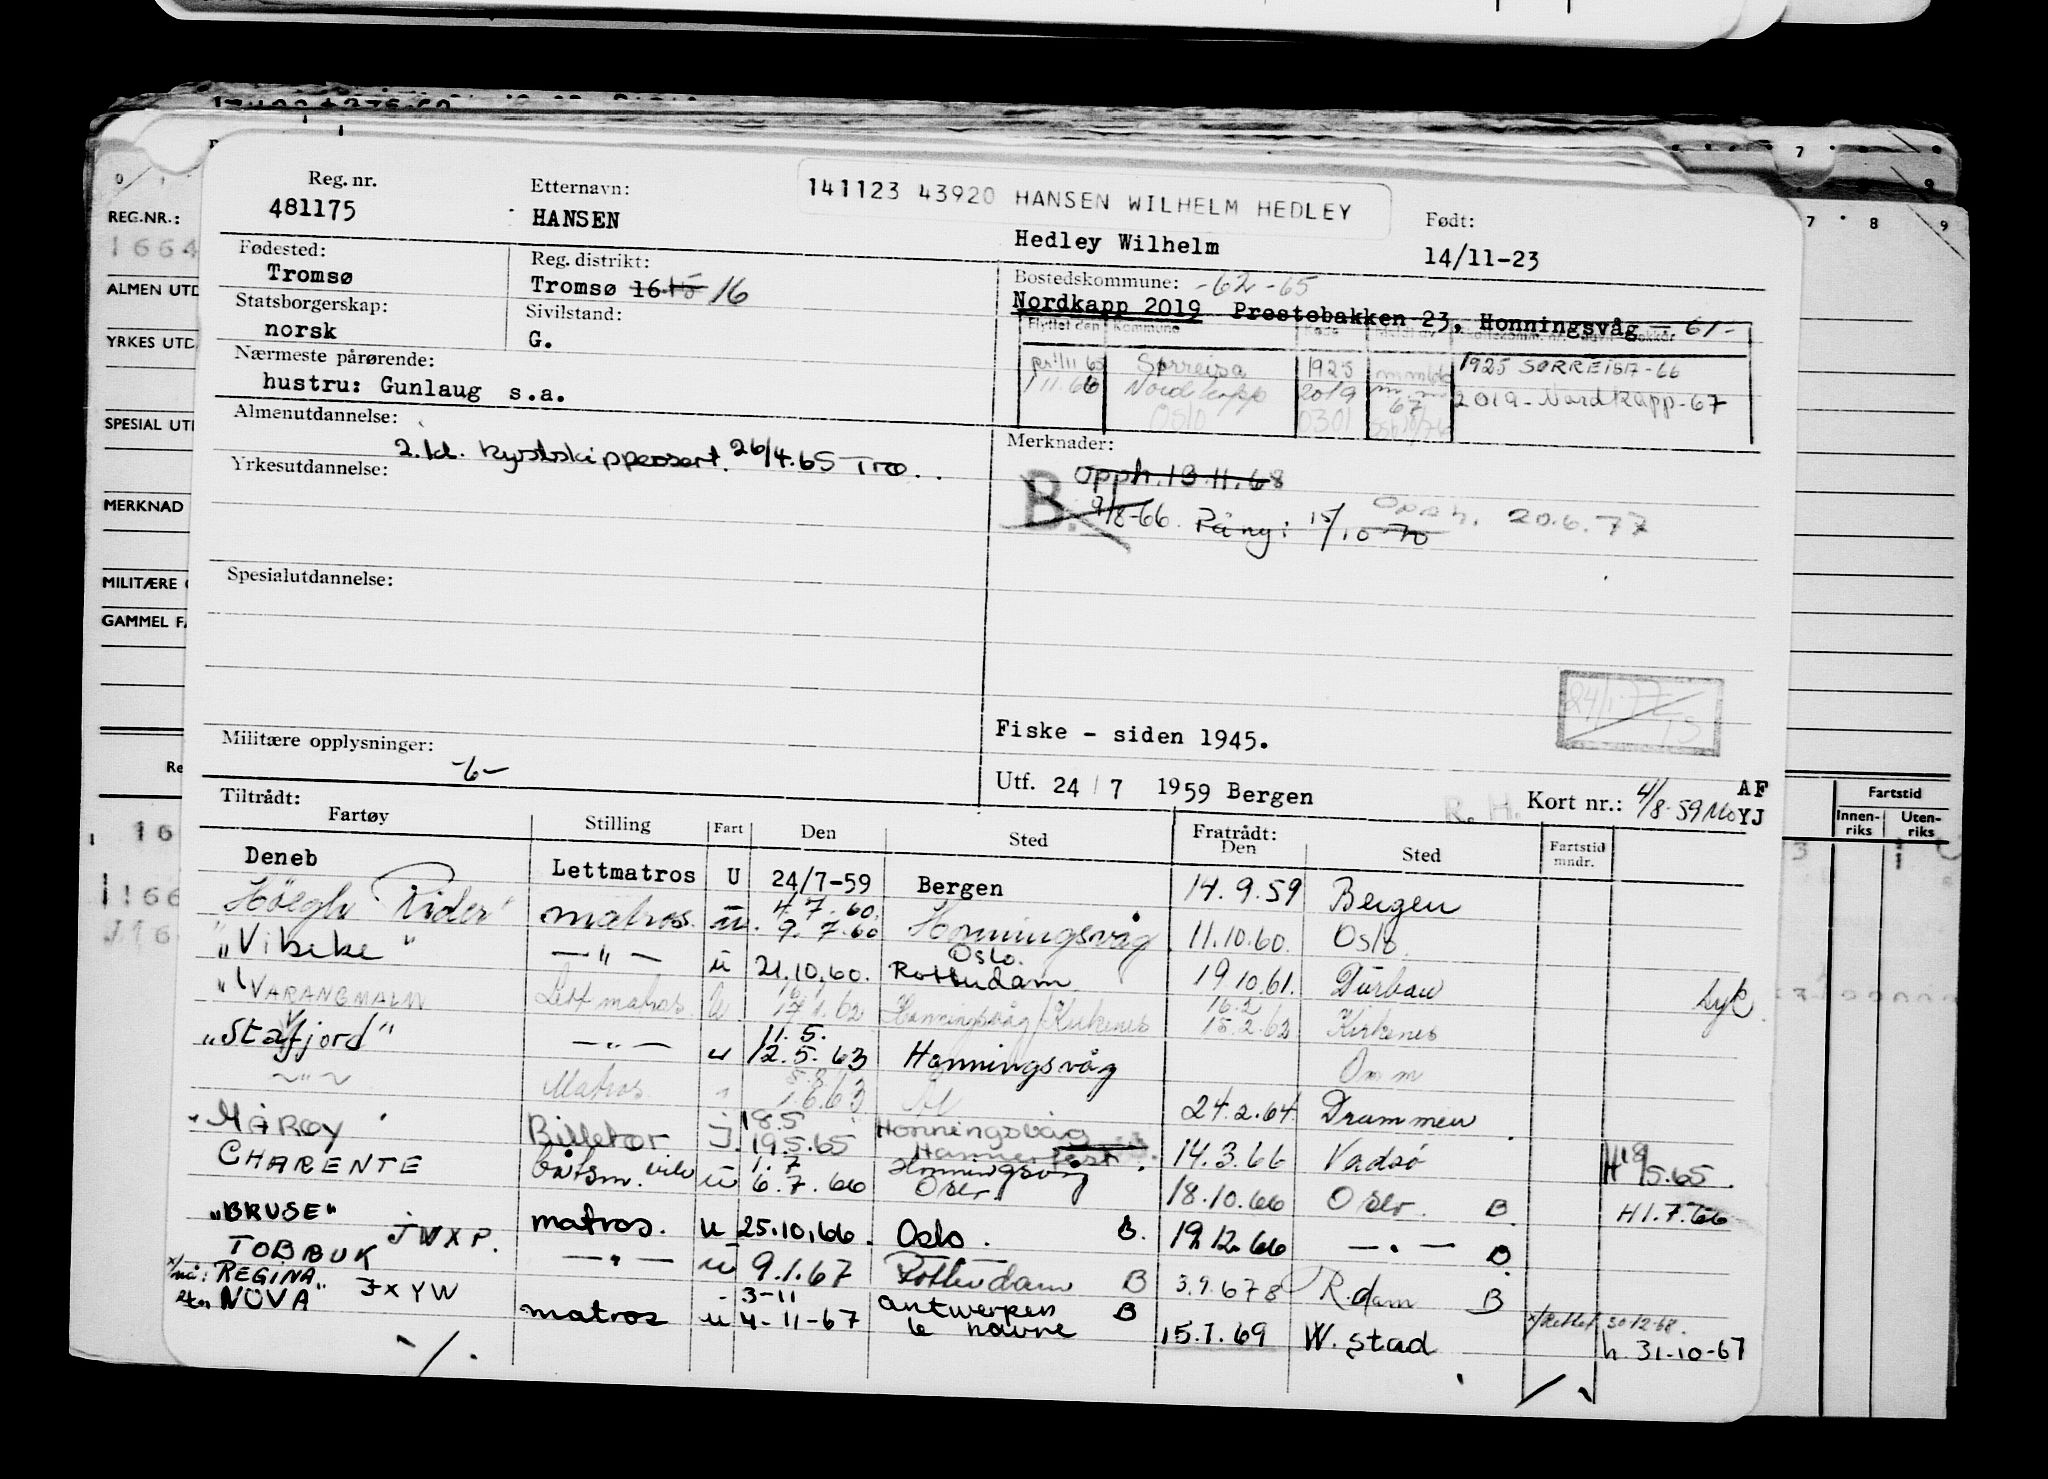 Reg. nr.
481175
Etternavn:
HANSEN
141123 43920 HANSEN WILHELM HEDLEY
Hedley Wilhelm
Født:
14/11-23
Fødested:
Tromsø
Reg. distrikt:
Tromsø 16 15 16
Bostedskommune: -62-65
Nordkapp 2019 Prestebakken 23, Honningsvåg - 61-
Statsborgerskap:
norsk
Sivilstand:
G.
Flyttet den Kommune
Sørreisa 1925 1925 SØRREISA-66
1.11.66 Nordkapp 2019 67 2019-Nordkapp-67
Oslo 0301
Nærmeste pårørende:
hustru: Gunlaug s.a.
Almenutdannelse:
2. kl. kystskippersert. 26/4.65 Trø.
Yrkesutdannelse:
Merknader:
Opph. 13.11.68
B. 9/8-66. På ny: 15/10-70 Opph. 20.6.77
Spesialutdannelse:
24/1-77
Fiske - siden 1945.
Militære opplysninger:
-6-
Utf. 24 / 7 1959 Bergen
R. H.
Kort nr.: 4/8-59 Mo
AF
YJ
Tiltrådt:
Fartøy Stilling Fart Den Sted Fratrådt: Den Sted Fartstid mndr.
Deneb Lettmatros U 24/7-59 Bergen 14.9.59 Bergen
Höegh Rider" matros. u. 4.7.60. 9.7.60 Honningsvåg 11.10.60. Oslo.
"Vibeke" —"— u 21.10.60. Oslo. Rotterdam 19.10.61. Durban Lyk.
"VARANGMALM Lett matros. U 17.1.62 Honningsvåg/Kirkenes 16.2 15.2.62 Kirkenes
"Stafjord" —"— u 11.5. 12.5.63 Honningsvåg Omm
~"~ Matros. 1.6.63 24.2.64. Drammen
"MÅRØY" Billettør J. 18.5 19.5.65 Honningsvåg Hammerfest 14.3.66 Vadsø H 18/5.65.
CHARENTE båtsm. vik u 1.7 6.7.66 Honningsvåg Oslo 18.10.66 Oslo. B. H 1.7.66
"BRUSE" JWXP. matros. u 25.10.66. Oslo. B. 19.12.66 —"— B
TOBRUK —"— u 9.1.67 Rotterdam B 3.9.67 R.dam B
x/nå: REGINA JXYW
NOVA" matros u 3-11 4-11-67 Antwerpen le havre B 15.1.69 W.stad x/Rettet 30.12.68. h. 31-10-67
-/.
REG.NR.:
1664
ALMEN UTD
YRKES UTD
SPESIAL UTD
MERKNAD
MILITÆRE
GAMMEL FA
Re
7 8 9
Fartstid
Innen-
riks
Uten-
riks